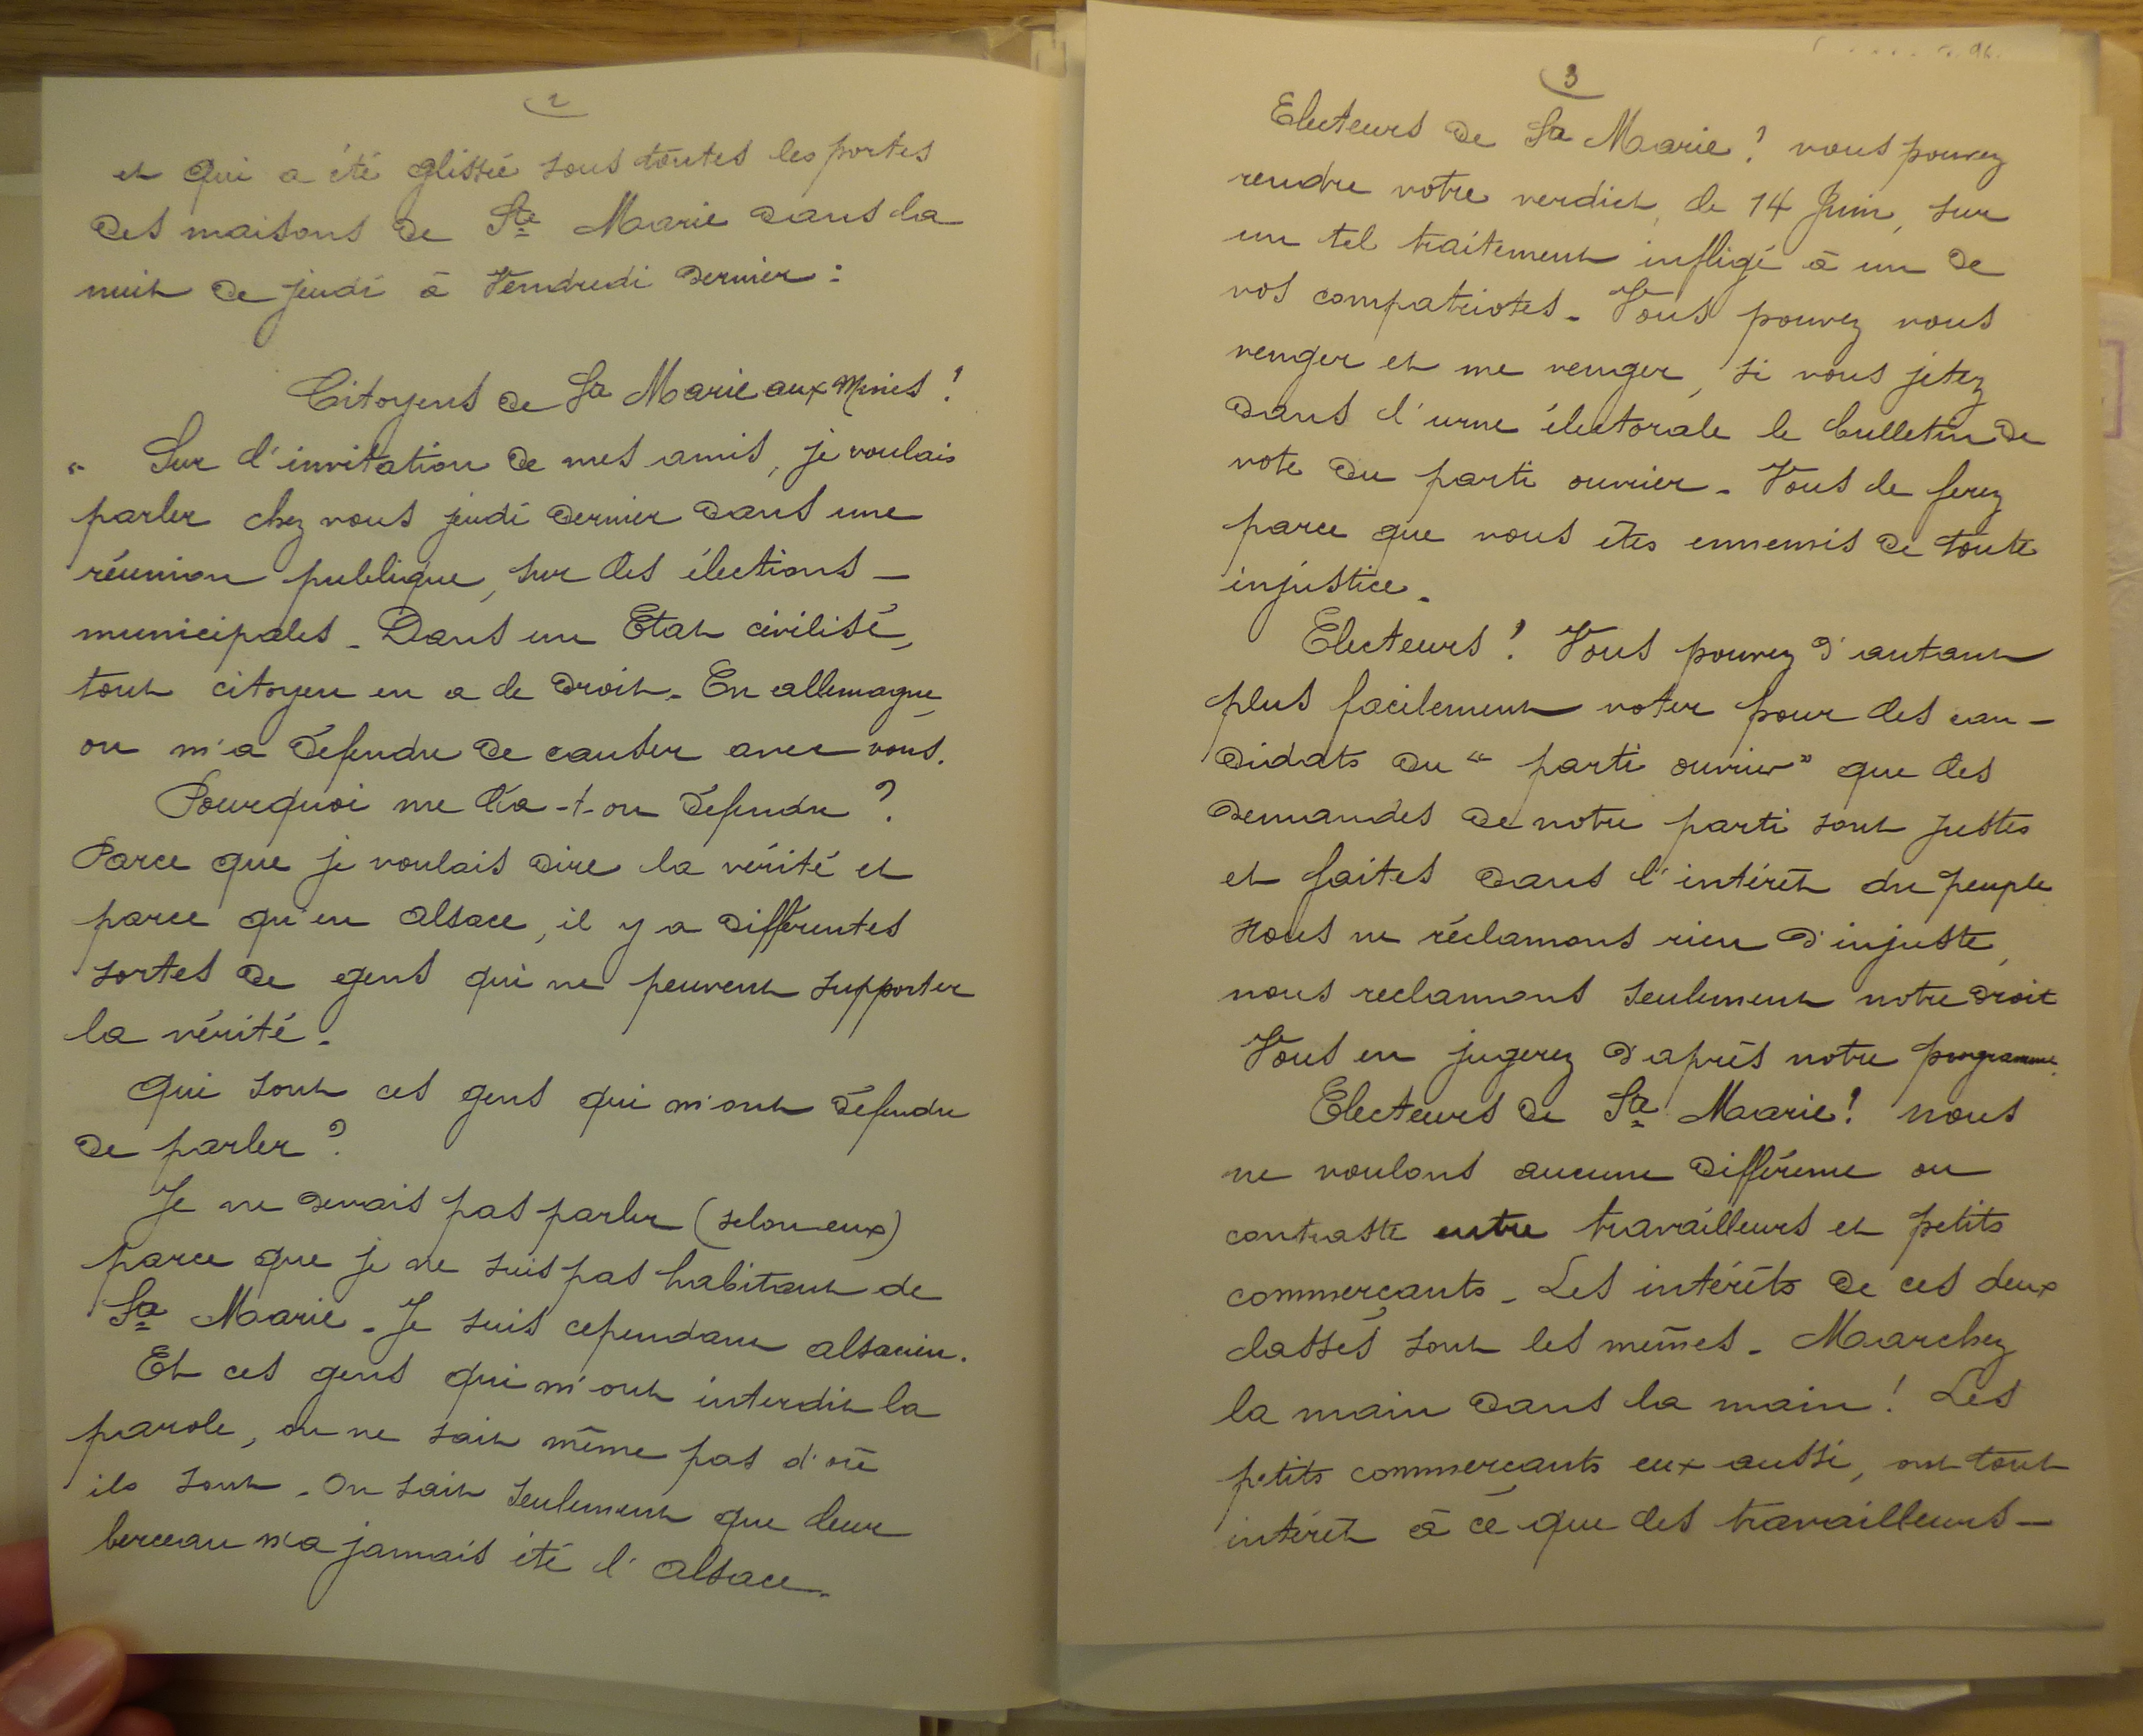 2
et qui a été glissée sous toutes les portes
des maisons de Ste Marie dans la
nuit de jeudi à Vendredi dernier :
Citoyens de Ste Marie aux Mines !
" Sur l'invitation de mes amis, je voulais
parler chez vous jeudi dernier dans une
réunion publique, sur les élections -
municipales - Dans un Etat civilisé,
tout citoyen en a le droit - En allemagne,
on m'a défendu de causer avec vous.
Pourquoi me l'a-t-on défendu ?
Parce que je voulais dire la vérité et
parce qu'en alsace, il y a différentes
sortes de gens qui ne peuvent supporter
la vérité -
qui sont ces gens qui m'ont défendu
de parler ?
Je ne devais pas parler (selon eux)
parce que je ne suis pas habitant de
Ste Marie - Je suis cependant alsacien.
Et ces gens qui m'ont interdit la
parole, on ne sait même pas d'où
ils sont - on sait seulement que leur
berceau n'a jamais été l'alsace -
3
Electeurs de Ste Marie ! vous pouvez
rendre votre verdict, le 14 Juin, sur
un tel traitement infligé à un de
vos compatriotes - Vous pouvez vous
venger et me venger, si vous jetez
dans l'urne électorale le bulletin de
vote du parti ouvrier - Vous le ferez
parce que vous êtes ennemis de toute
injustice -
Electeurs ! Vous pouvez d'autant
plus facilement voter pour les can -
didats du " parti ouvrier " que les
demandes de notre parti sont justes
et faites dans l'intérêt du peuple
Nous ne réclamons rien d'injuste,
nous reclamons seulement notre droit
Vous en jugerez d'après notre programme.
Electeurs de Ste Marie ! nous
ne voulons aucune différence ou
contraste entre travailleurs et petits
commerçants - Les intérêts de ces deux
classes sont les mêmes - Marchez
la main dans la main ! Les
petits commerçants eux aussi, ont tout
intérêt à ce que les travailleurs -